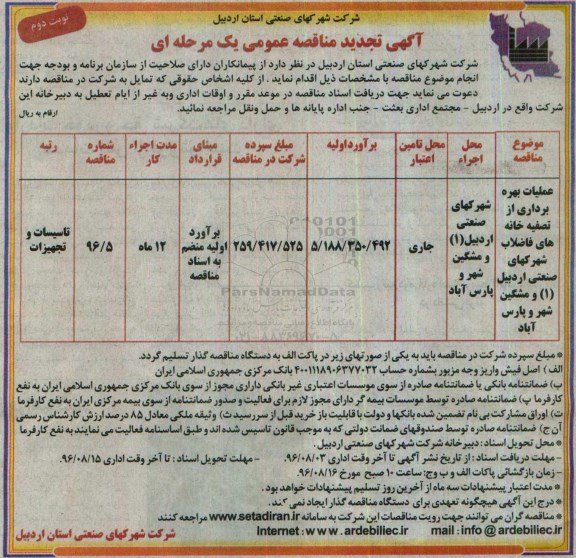 شرکت شهرکهای صنعتی استان اردبیل
نوبت دوم
آگهی تجدید مناقصه عمومی یک مرحله ای
شرکت شهرکهای صنعتی استان اردبیل در نظر دارد از پیمانکاران دارای صلاحیت از سازمان برنامه و بودجه جهت
انجام موضوع مناقصه با مشخصات ذیل اقدام نماید . از کلیه اشخاص حقوقی که تمایل به شرکت در مناقصه دارند
دعوت می نماید جهت دریافت اسناد مناقصه در موعد مقرر و اوقات اداری وبه غیر از ایام تعطیل به دبیرخانه این
شرکت واقع در اردبیل - مجتمع اداری بعثت - جنب اداره پایانه ها و حمل ونقل مراجعه نمائید.
ارقام به ریال
موضوع مناقصه
محل اجراء
محل تامین اعتبار
برآورداولیه
مبلغ سپرده شرکت در مناقصه
مبنای قرارداد
مدت اجراء کار
شماره مناقصه
رتبه
عملیات بهره
برداری از
تصفیه خانه
های فاضلاب
شهرکهای
صنعتی اردبیل
(۱) و مشگین
شهر و پارس
آباد
شهرکهای
صنعتی
اردبیل(۱)
و مشگین
شهر و
پارس آباد
جاری
۵/۱۸۸/۳۵۰/۴۹۲
۲۵۹/۴۱۷/۵۲۵
برآورد
اولیه منضم
به اسناد
مناقصه
۱۲ ماه
۹۶/۵
تاسیسات و
تجهیزات
ParsNamadData
* مبلغ سپرده شرکت در مناقصه باید به یکی از صورتهای زیر در پاکت الف به دستگاه مناقصه گذار تسلیم گردد.
الف ) اصل فیش واریز وجه مزبور بشماره حساب ۴۰۰۱۱۱۸۹۰۶۳۷۷۰۳۲ بانک مرکزی جمهوری اسلامی ایران
ب) ضمانتنامه بانکی یا ضمانتنامه صادره از سوی موسسات اعتباری غیر بانکی دارای مجوز از سوی بانک مرکزی جمهوری اسلامی ایران به نفع
کارفرما پ) ضمانتنامه صادره توسط موسسات بیمه گر دارای مجوز لازم برای فعالیت و صدور ضمانتنامه از سوی بیمه مرکزی ایران به نفع کارفرما
ت) اوراق مشارکت بی نام تضمین شده بانکها و دولت با قابلیت باز خرید قبل از سررسید ث) وثیقه ملکی معادل ۸۵ درصد ارزش کارشناس رسمی
آن ج) ضمانتنامه صادره توسط صندوقهای ضمانت دولتی که به موجب قانون تاسیس شده اند و طبق اساسنامه فعالیت می نمایند به نفع کارفرما
* محل تحویل اسناد: دبیرخانه شرکت شهرکهای صنعتی اردبیل.
- مهلت دریافت اسناد : از تاریخ نشر آگهی تا آخر وقت اداری ۹۶/۰۸/۰۳ - مهلت تحویل اسناد : تا آخر وقت اداری ۹۶/۰۸/۱۵.
- زمان بازگشائی پاکات الف و ب وج: ساعت ۱۰ صبح مورخ ۹۶/۰۸/۱۶
* مدت اعتبار پیشنهادات سه ماه از آخرین روز تسلیم پیشنهادات خواهد بود.
* درج این آگهی هیچگونه تعهدی برای دستگاه مناقصه گذار ایجاد نمی کند.
* مناقصه گران می توانند جهت رویت مناقصات این شرکت به سامانه www.setadiran.ir مراجعه کنند
Internet:www.ardebiliec.ir mail:info@ardebiliec.ir
شرکت شهرکهای صنعتی استان اردبیل